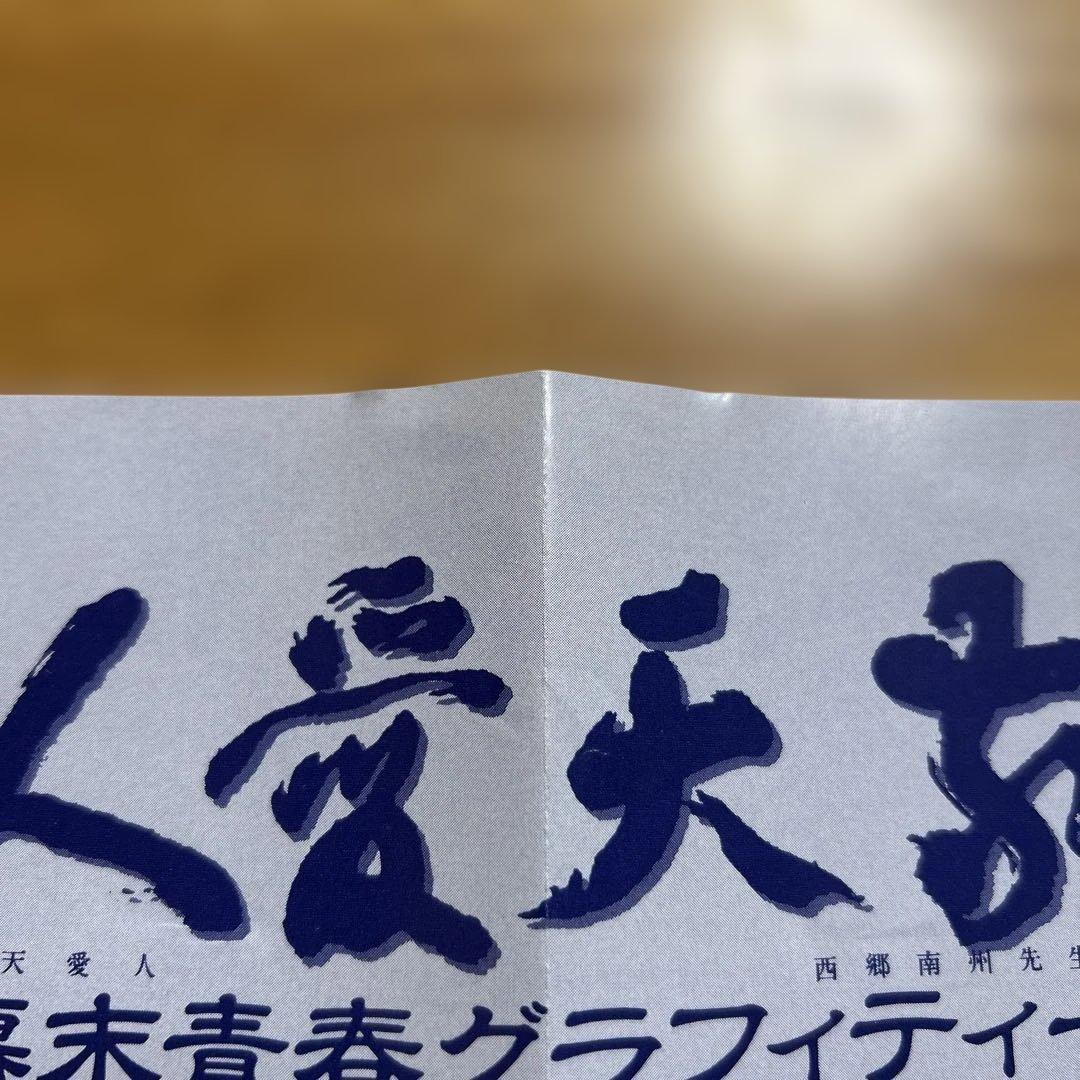 敬天愛人
天愛人
西郷南州先生
幕末青春グラフィティ